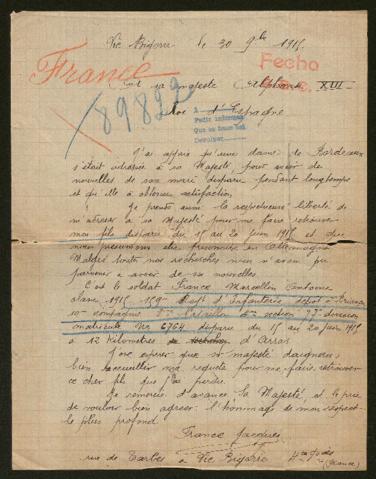 Vic Bigorre le 30 9bre 1915
France
Fecha
sa majesté Alphonse XIII
Roi d'Espagne
89822
Pedir informes
Devolver
J'ai appris qu'une dame de Bordeaux
s'était adressée à sa Majesté pour avoir de
nouvelles de son mari disparu pendant longtemps
et qu'elle a obtenu satisfaction,
Je prends aussi la respectueuse liberté de
m'adresser à sa Majesté pour me faire retrouver
mon fils disparu du 15 au 20 juin 1915 et que
nous présumons être prisonnier en Allemagne
Malgré toutes nos recherches nous n'avons pu
parvenir à avoir de ses nouvelles.
C'est le soldat France Marcellin Antoine
classe 1915 159e Regt d'Infanterie
10me compagnie 3me Bataillon 77e division
matricule No 6764 disparu du 15 au 20 juin 1915
à 12 kilomètres d'Arras.
J'ose espérer que sa majesté daignera
bien accueillir ma requête pour me faire retrouver
ce cher fils que j'ai perdu.
Je remercie d'avance sa Majesté et le prie
de vouloir bien agréer l'hommage de mon respect
le plus profond
France Jacques
rue de Tarbes à Vic Bigorre
(France)